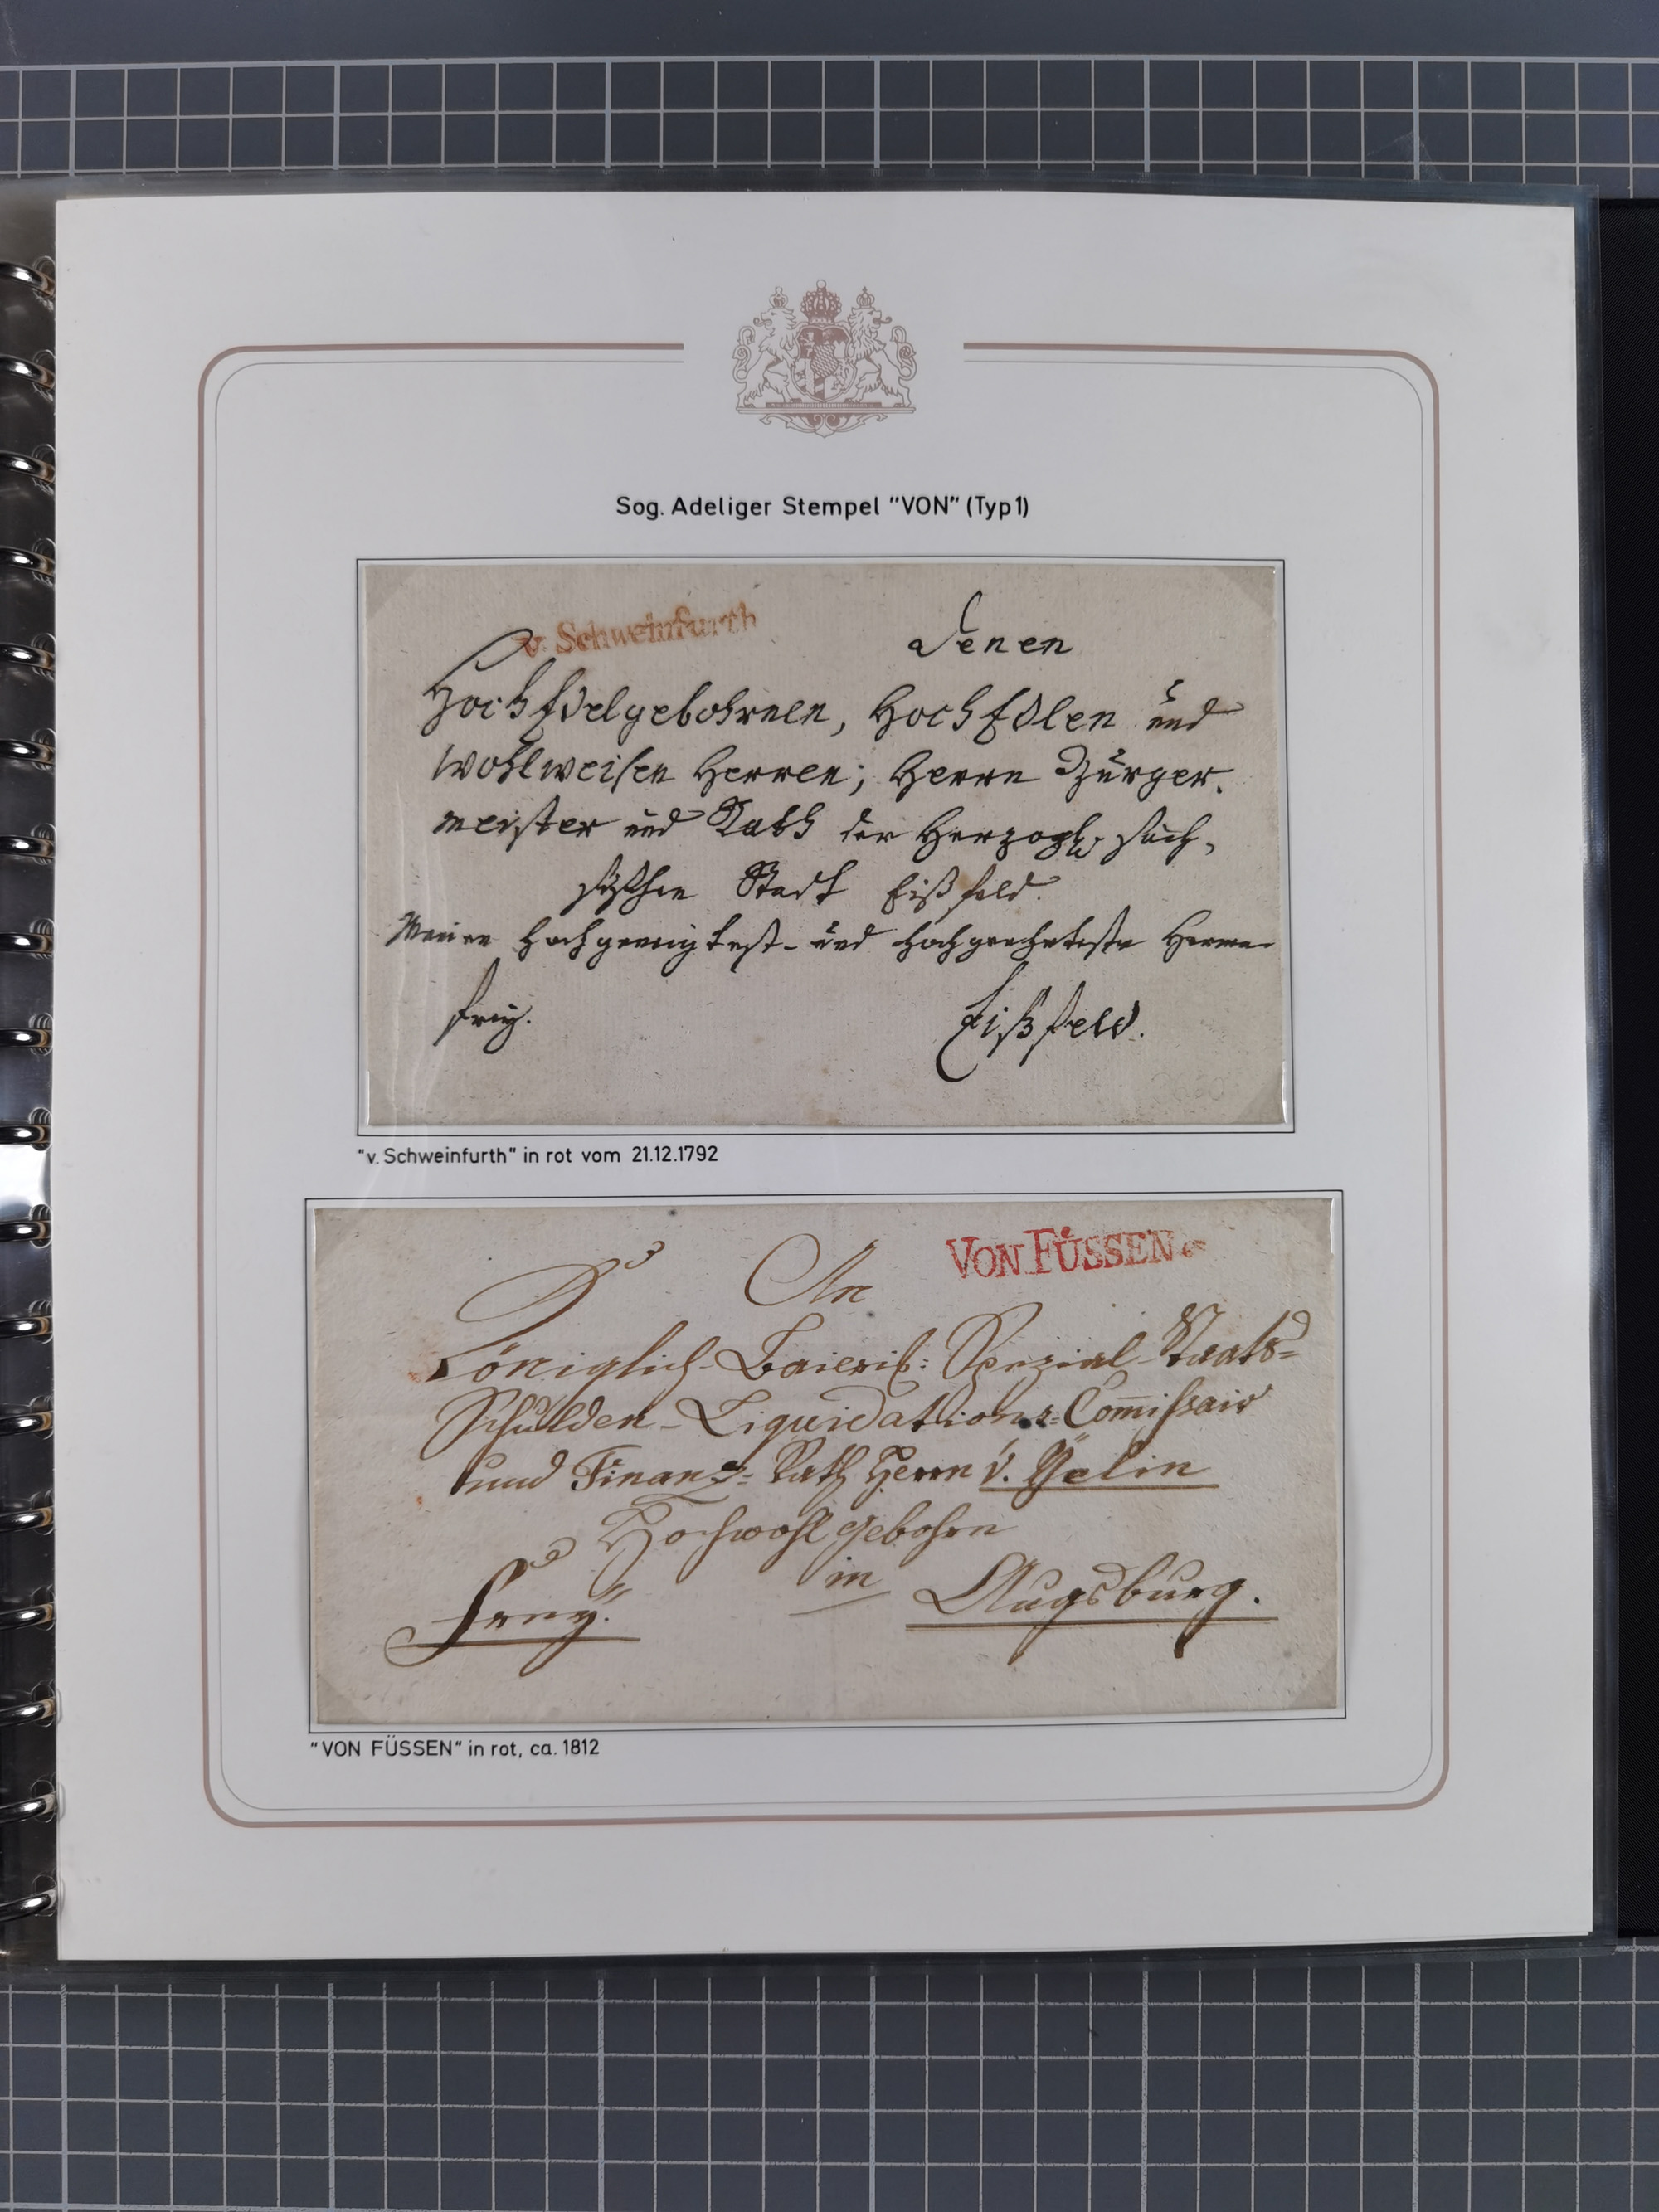 Sog. Adeliger Stempel "VON" (Typ 1)
v. Schweinfurth
Denen
HochEdelgebohrnen, HochEdlen und
Wohlweisen Herren; Herrn Bürger-
meister und Rath der Herzogl. Säch-
sischen Stadt Eißfeld.
Meinen Hochgeneigtest- und Hochgeehrtesten Herren
frey.
Eißfeld.
"v. Schweinfurth" in rot vom 21.12.1792
VON FÜSSEN
An
Königlich-Baierisch: Spezial-Staats=
Schulden-Liquidations=Com̄issair
und Finanz=Rath Herrn v. Yelin
Hochwohlgebohrn
in
frey.
Augsburg.
"VON FÜSSEN" in rot, ca. 1812